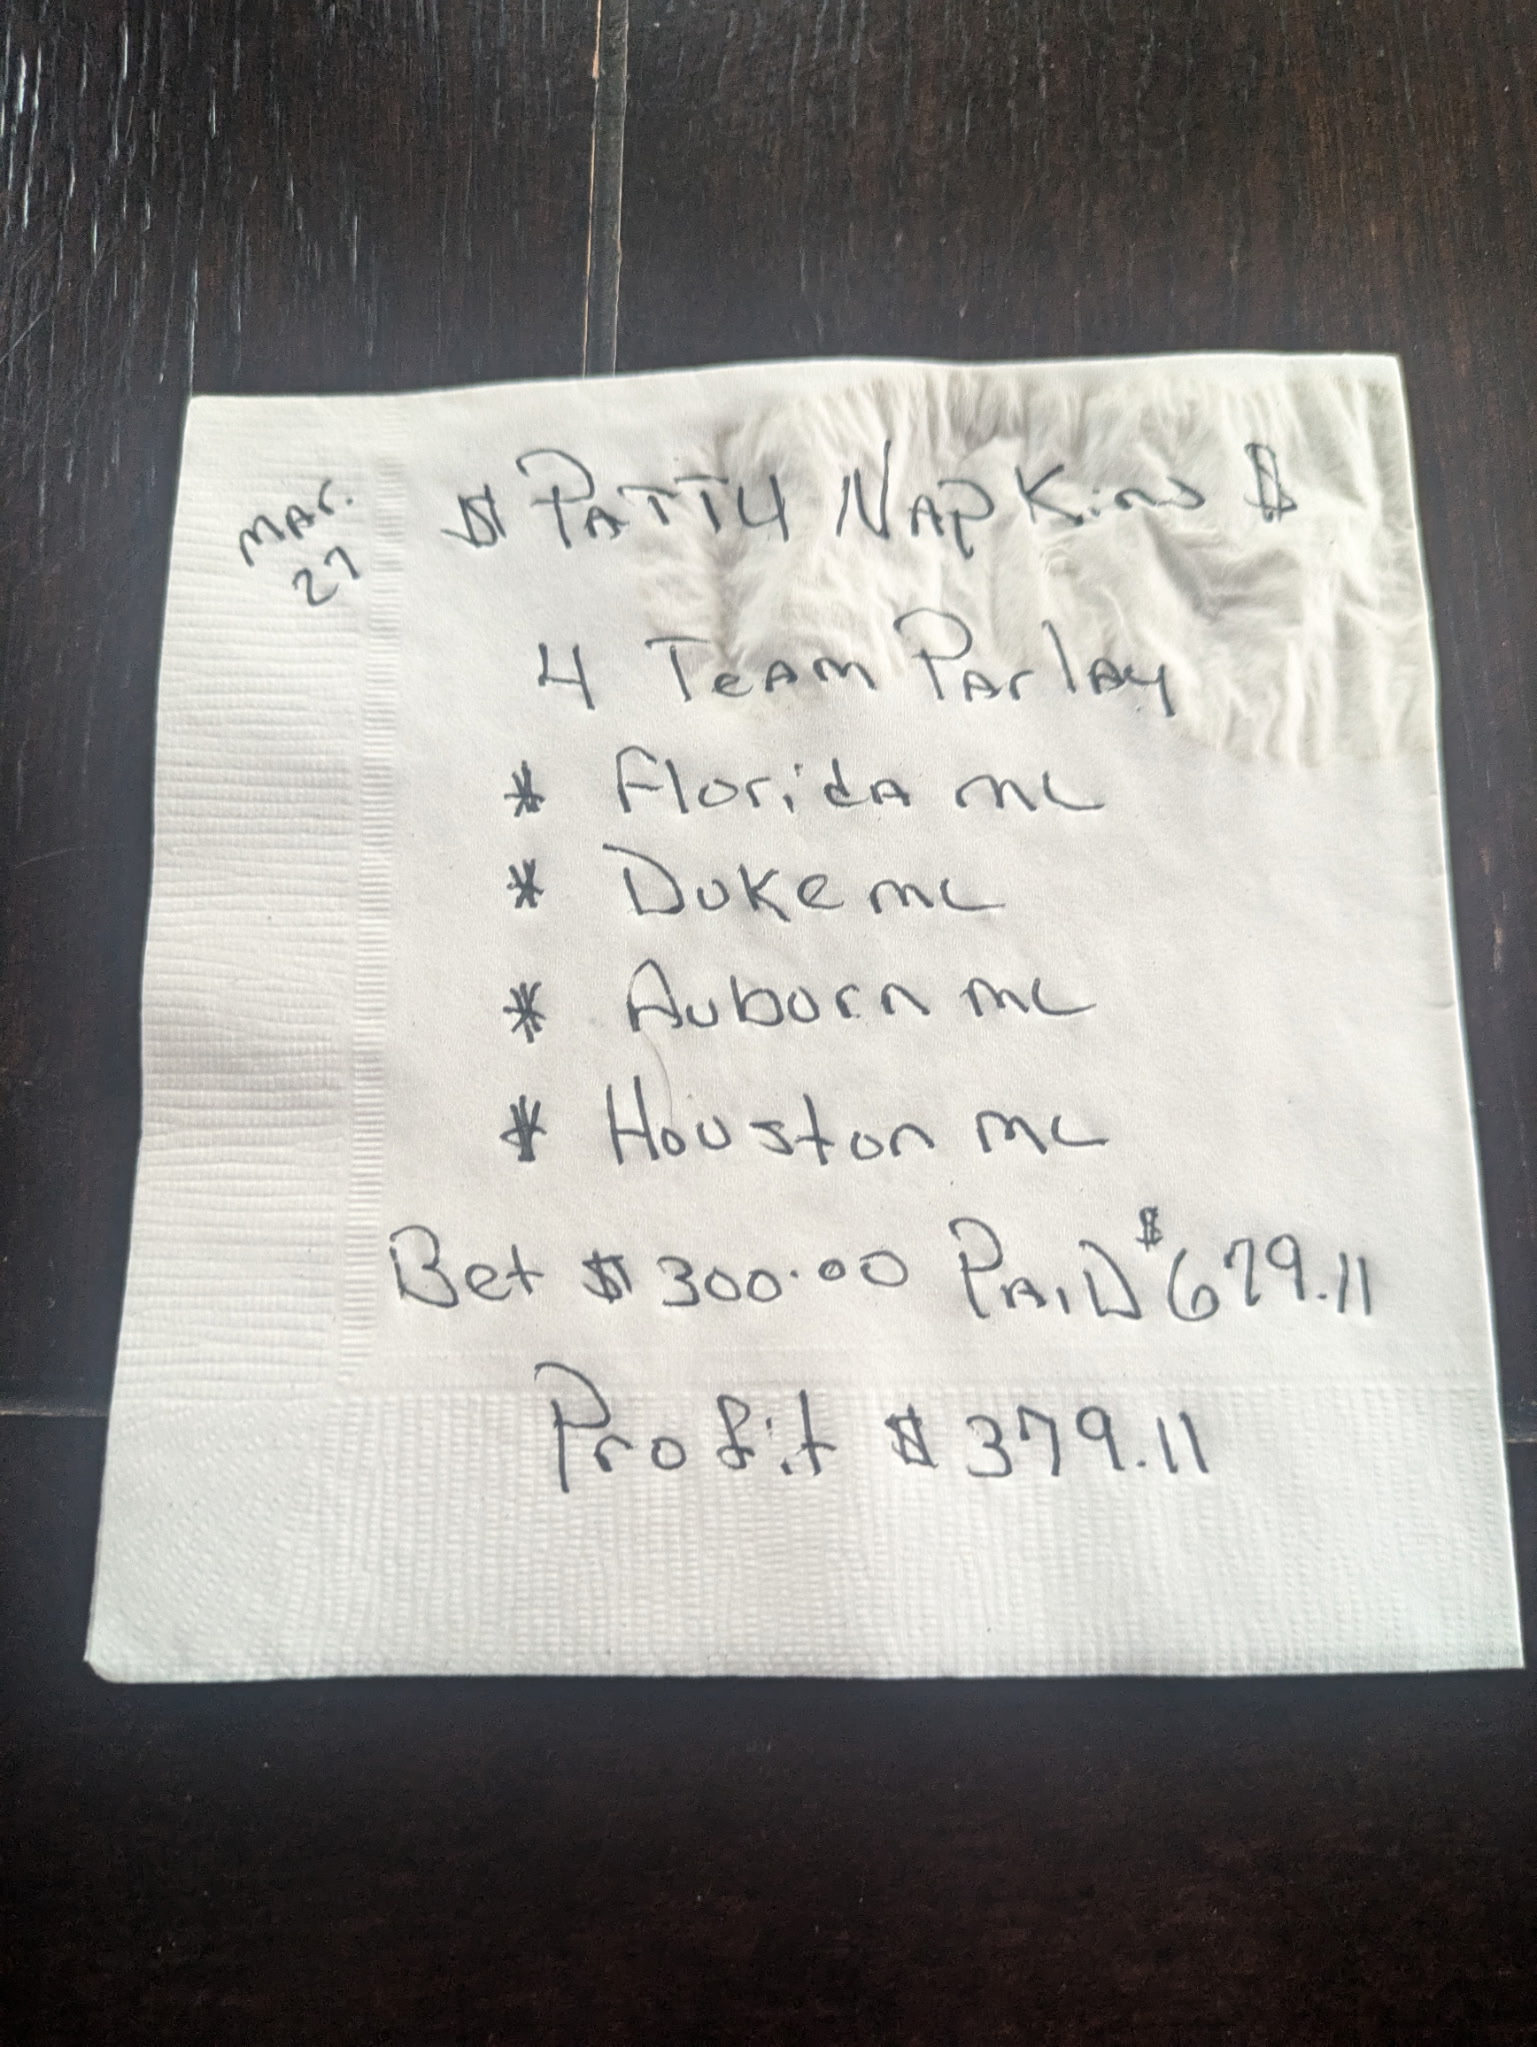 Mar.
27
$ Patty Napkins $
4 Team Parlay
* Florida ML
* Duke ML
* Auburn ML
* Houston ML
Bet $300.00 Paid $679.11
Profit $379.11